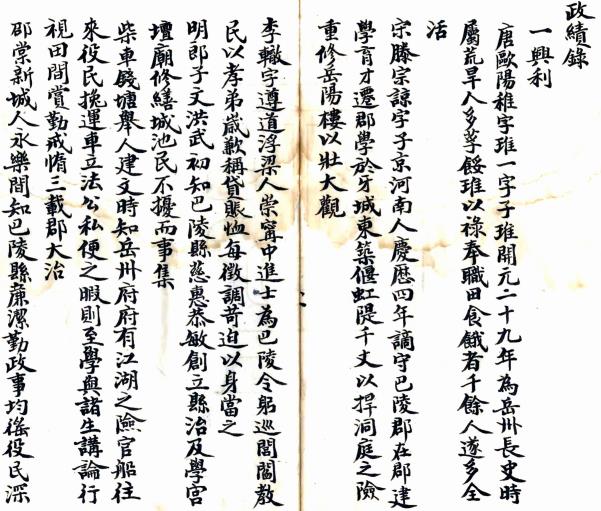 政績錄
一興利
唐歐陽稚字琟一字子琟開元二十九年為岳州長史時
屬荒旱人多莩餒琟以祿奉職田食餓者千餘人遂多全
活
宗滕宗諒字子京河南人慶厯四年謫守巴陵郡在郡建
學育才遷郡學於牙城東築偃虹隄千丈以捍洞庭之險
重修岳陽樓以壯大觀
李轍字遵道浮梁人崇寗中進士為巴陵令躬巡閭閻教
民以孝弟歲歉稱貸賑恤每徵調苛迫以身當之
明郎子文洪武初知巴陵縣慈惠恭敏創立縣治及學宮
壇廟修繕城池民不擾而事集
柴車錢塘舉人建文時知岳州府府有江湖之險官船往
來役民挽運車立法公私便之暇則至學與諸生講論行
視田間賞勤戒惰三載郡大治
邵棠新城人永樂間知巴陵縣廉潔勤政事均徭役民深